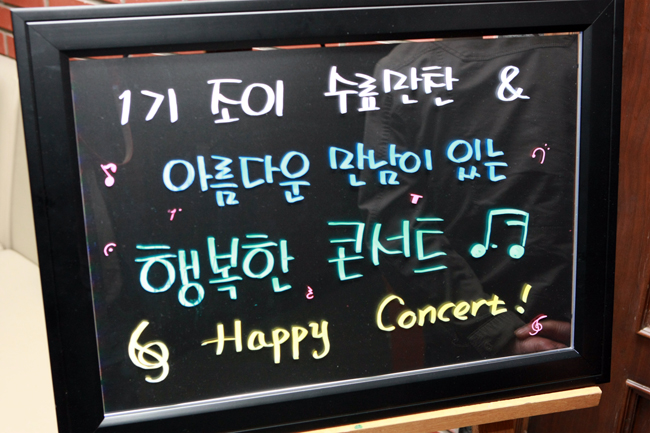 1기 조이 수료만찬 &
아름다운 만남이 있는
행복한 콘서트
Happy Concert!